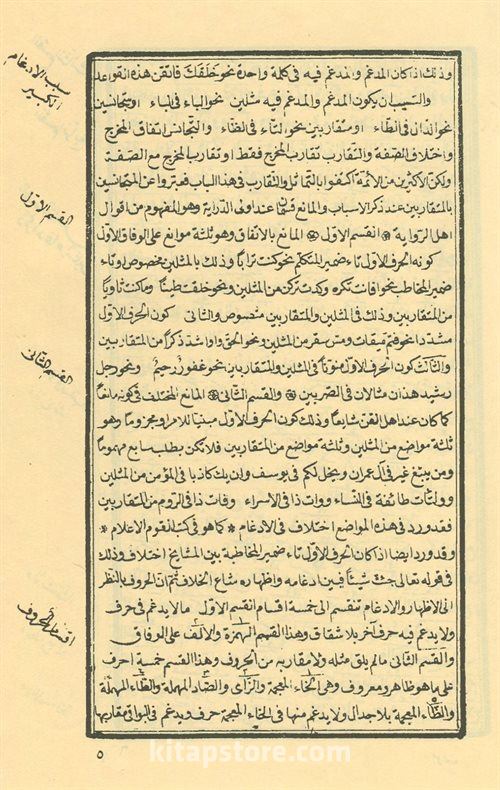 وذلك اذا كان المدغم والمدغم فيه فى كلمة واحدة نحو خَلَقَكَ فاتقن هذه القواعد
والسبب ان يكون المدغم والمدغم فيه مثلين نحو الباء فى الباء او متجانسين
نحو الدال فى الطاء او متقاربين نحو الثاء فى الظاء والتجانس اتفاق المخرج
واختلاف الصفة والتقارب تقارب المخرج فقط او تقارب المخرج مع الصفة
ولكن الاكثرين من الائمة اكتفوا بالتماثل والتقارب فى هذا الباب فعبروا عن المتجانسين
بالمتقاربين عند ذكر الاسباب والمانع قسمان عند اولى الدراية وهو المفهوم من اقوال
اهل الرواية ❊ القسم الاول ❊ المانع بالاتفاق وهو ثلثة موانع على الوفاق الاول
كونه الحرف الاول تاء ضمير المتكلم نحو كنت ترابا وذلك بالمثلين مخصوص او تاء
ضمير المخاطب نحو افانت تكره وكدت تركن من المثلين ونحو خلقت طينا وما كنت ثاويا
من المتقاربين وذلك فى المثلين والمتقاربين منصوص والثانى كون الحرف الاول
مشددا نحو فتم ميقات ومس سقر من المثلين ونحو الحق واو اشد ذكرا من المتقاربين
والثالث كون الحرف الاول منونا فى المثلين والمتقاربين نحو غفور رحيم ونحو رجل
رشيد هذان مثالان فى الضربين ❊ والقسم الثانى ❊ المانع المختلف فى كونه مانعا
كما كان عند اهل الفن شايعا وذلك كون الحرف الاول مبنيا للامر او مجزوما وهو
ثلثة مواضع من المثلين وثلثة مواضع من المتقاربين فلا تكن بطلب سابع مهموما
ومن يبتغ غير فى آل عمران ويخل لكم فى يوسف وان يك كاذبا فى المؤمن من المثلين
وولتأت طائفة فى النساء ووات ذا فى الاسراء وفات ذا فى الروم من المتقاربين
فقد ورد فى هذه المواضع اختلاف فى الادغام ❊ كما هو فى كتب القوم الاعلام ❊
وقد ورد ايضا اذا كان الحرف الاول تاء ضمير المخاطبة بين المشايخ اختلاف وذلك
فى قوله تعالى جئت شيئا فبين ادغامه واظهاره شاع الخلاف ثم ان الحروف بالنظر
الى الاظهار والادغام تنقسم الى خمسة اقسام القسم الاول ما لا يدغم فى حرف
ولا يدغم فيه حرف آخر بلا شقاق وهذا القسم الهمزة والالف على الوفاق
والقسم الثانى ما لم يلق مثله ولا مقاربه من الحروف وهذا القسم خمسة احرف
على ما هو ظاهر ومعروف وهى الخاء المعجمة والزاى والصاد المهملة والطاء المهملة
والظاء المعجمة بلا جدال ولا يدغم منها فى الخاء المعجمة حرف ويدغم فى البواقى مقاربها
سبب الادغام
الكبير
القسم الاول
القسم الثانى
اقسام الحروف
٥
kitapstore.com